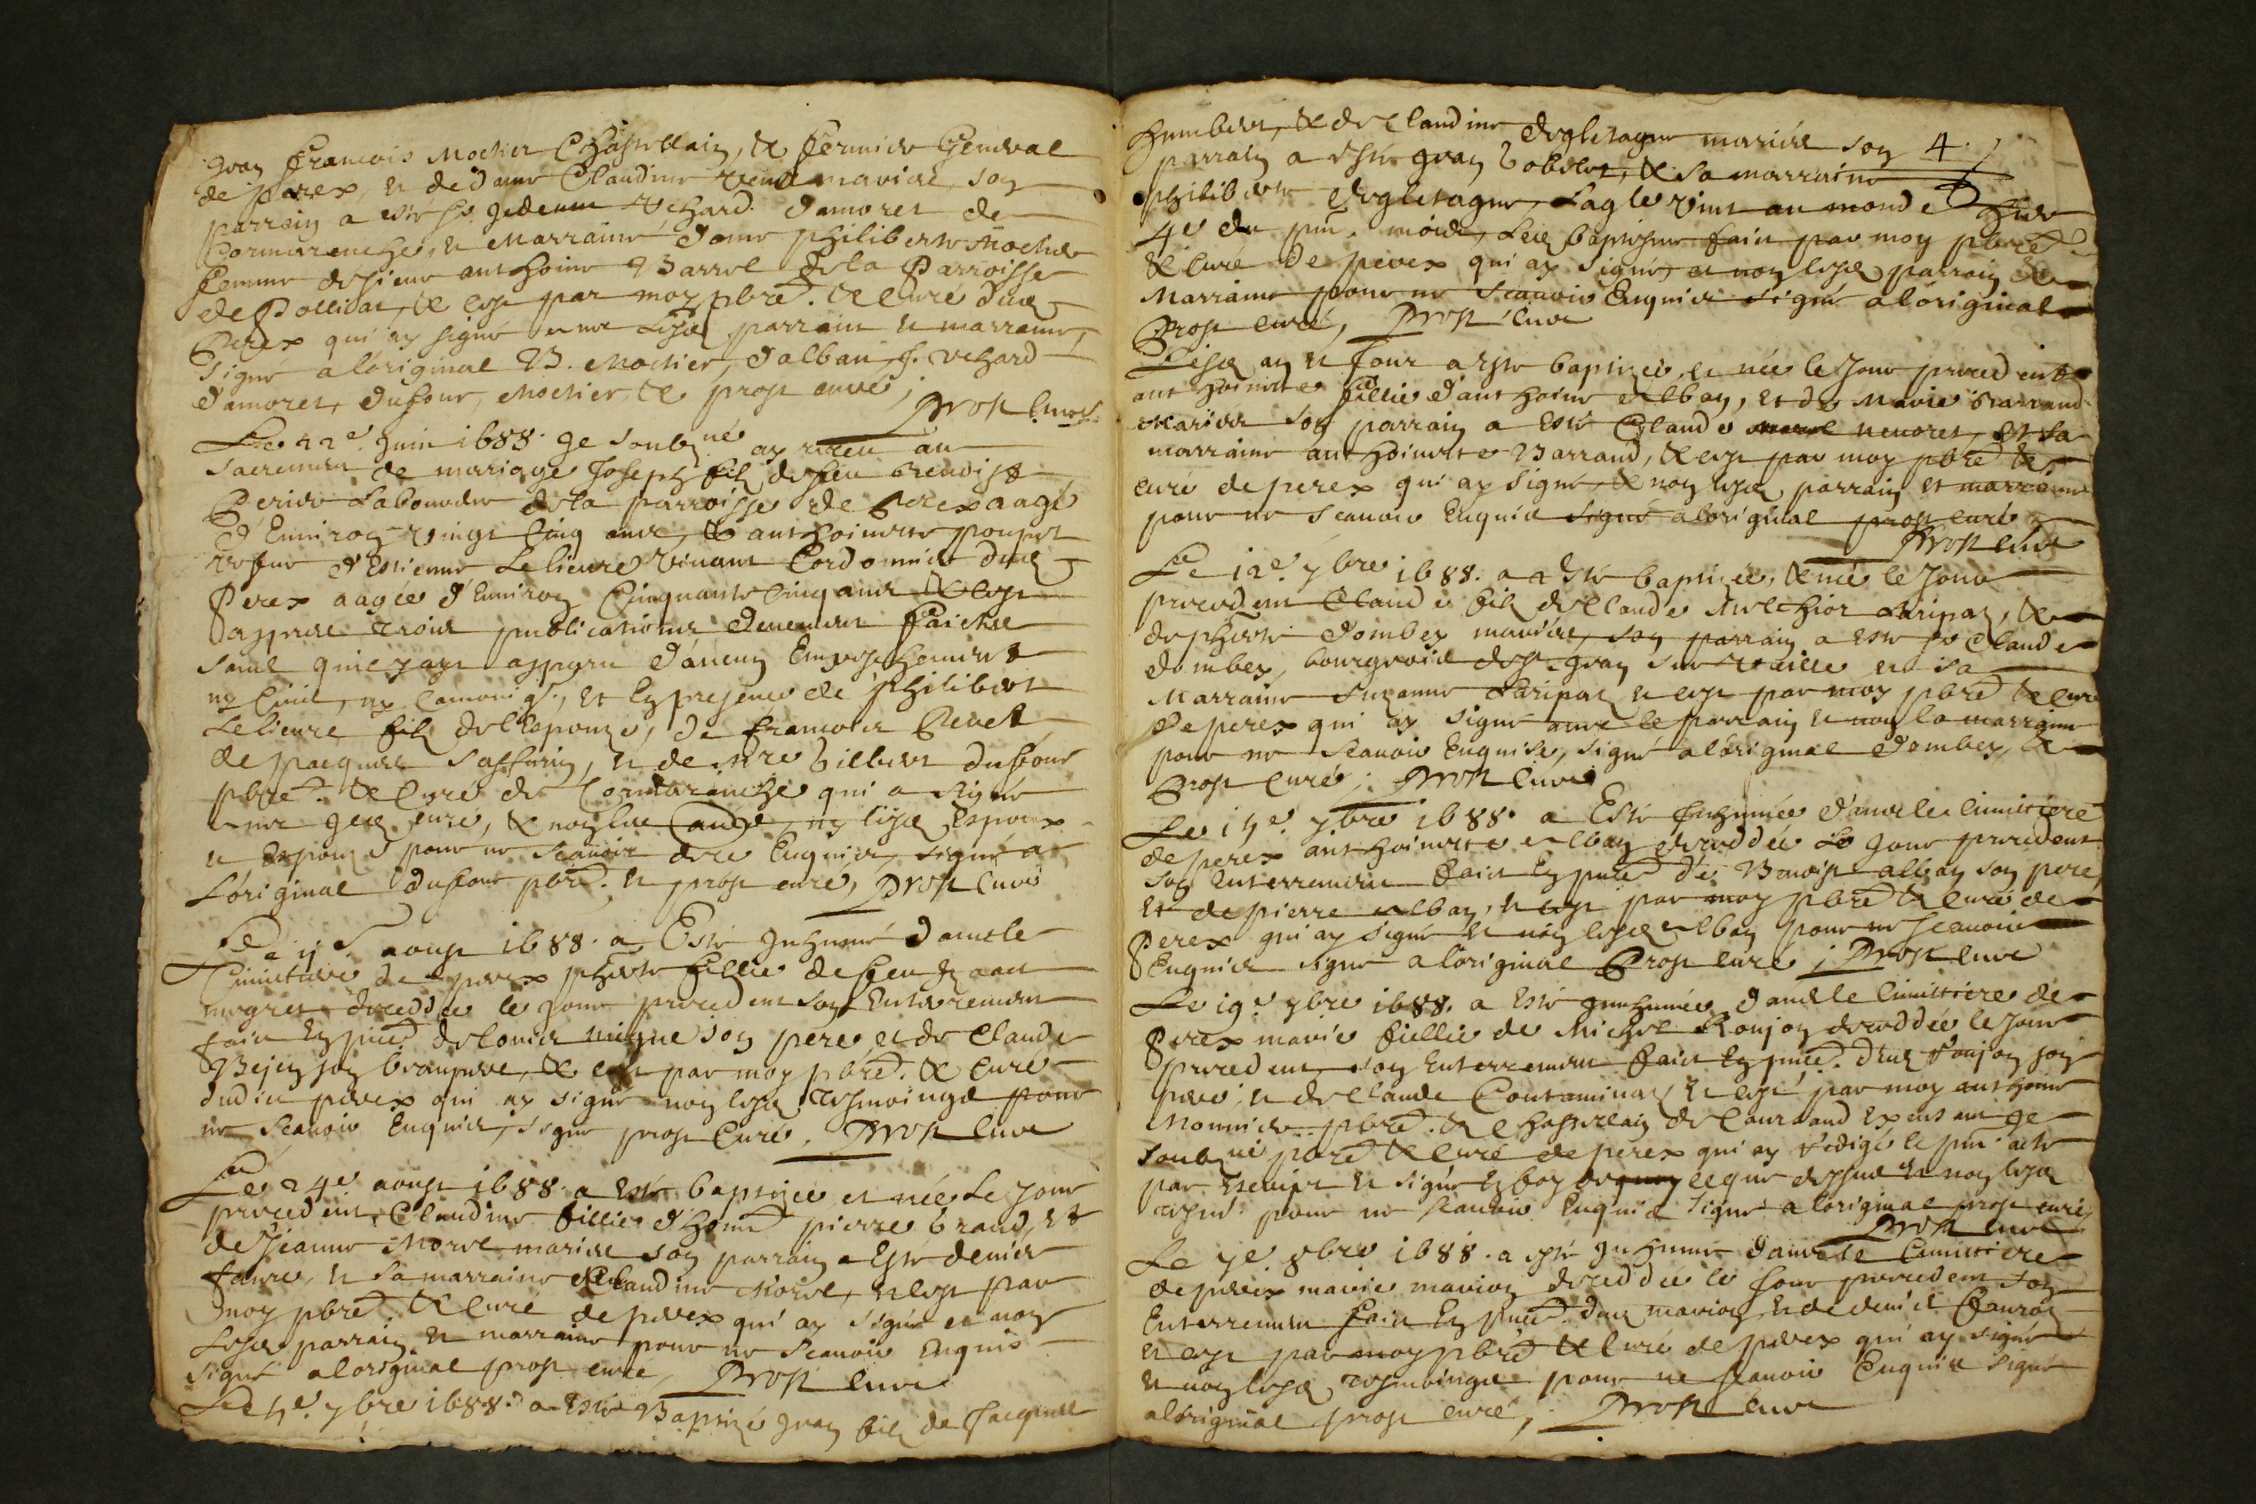 Jean Francois Mochier Chastellain, & fermier General
de perex, et de dame Claudine mariee, son
parrain a esté sr. Vchard d'amoret de
Cormarenche, et Marraine dame philiberte Mochier
femme de sieur anthoine Barrel de la Parroisse
de Pollliat, & ce par moy pbre. & Curé dud
Perex qui ay signé avec lesd parrain et marraine,
signé a l'original B. Mochier, d'alban, f. Vchard
d'amoret, dufour, Mochier, & prost curé, Prost Cure
Le 22e Juin 1688. Je soubné ay receu au
sacrement de mariage Joseph filz de feu benoist
Perier Laboureur de la parroisse de Perex aagé
d'Enuiron vingt Cinq ans, & anthoinette poupet
vefue d'Estienne Lelieure viuant Cordonnier dud
Perex aagée d'Enuiron Cinquante Cinq ans & ce
apprez trois publications deuement faictes
sans quil y aye apparu d'aucun Empeschement
ny Ciuil, ny Canoniq., et En presence de Philibert
Lelieure filz de lespouze, de francois Reuet
de Jacques Saffurin, et de mre Gilbert dufour
pbre. & Curé de Cormaranche qui a signé
auec Je curé, & non les ny lesd Espoux
et Espouze pour ne scauoir de ce Enquis, signé a
L'original dufour pbre. et prost curé, Prost Cure
Le aoust 1688. a Esté Inhumé dans le
Cimetiere de perex phterte fillie de feu
decedée le Jour precedent son Enterrement
faict En pnce de Louis son pere et de Claude
Bejen son beaupere, & ce par moy pbre. & Curé
dudict perex qui ay signé non lesd Tesmoings pour
ne Scauoir Enquis, signé prost Curé. Prost Cure
Le 24e aoust 1688. a Esté baptizée et née Le Jour
precedent, Claudine fillie d'hone pierre braud, et
de Jeanne Morel mariez son parrain a Esté denis
faure, et sa marraine Claudine Morel, et ce par
moy pbre. & Curé de perex qui ay signé et non
Lesd parrain et marraine pour ne Scauoir Enquis
signé a l'original prost curé, Prost Cure
Le 5e. 7bre 1688. a Esté Baptizé Jean filz de Jacques
Humbert, & de Claudine degletagne mariez son 4.
parrain a esté Jean & sa marraine
philiberte degletagne, Lagle vint au monde hier
4e du pnt. mois, Led baptesme faict par moy pbre
& Curé de perex qui ay signé, et non lesd parrain &
Marraine pour ne Scauoir Enquis signé a l'original
Prost curé, Prost Cure
Lesd an et Jour a esté baptizée, et née le Jour precedent
anthoinette fillie d'anthoine alban, et de Marie Barraud
Mariez son parrain a Esté Claude neuoret, et sa
marraine anthoinette Barraud, & ce par moy pbre &
curé de perex qui ay signé & non lesd parrain et marraine
pour ne Scauoir Enquis signé a loriginal prost curé
Prost Cure
Le 12e. 7bre 1688. a Esté baptizée, & né le Jour
precedent Claude filz de Claude Melchior Laripaz, &
de phterte dombey mariez, son parrain a esté sr Claude
dombey, bourgeois de st. Jean sur Vaille et sa
Marraine Suzanne Laripaz et ce par moy pbre & curé
de perex qui ay signé auec le parrain et non la marraine
pour ne Scauoir Enquise, signé a l'original dombey, &
Prost Curé; Prost Cure
Le 15e. 7bre 1688. a Esté Inhumée dans le Cimitiere
de perex anthoinette alban decedée Le Jour precedent
son Enterrement faict En pnce de Benoist alban son pere
et de pierre alban, et ce par moy pbre & Curé de
Perex qui ay signé et non lesd alban pour ne Scauoir
Enquis signé a l'original Prost curé; Prost Cure
Le 19e. 7bre 1688. a Esté Inhumée dans le Cimitiere de
Perex marie fillie de Michel Ronjon decedée le Jour
precedent, son Enterrement faict En pnce. dud Ronjon son
pere, et de Claude Contaminaz et ce par moy anthoine
Monnier pbre. & Chappelain de Cour Je
soubné pbre & Curé de perex qui ay redigé le pnt acte
par escript et signé En foy dequoy et non lesd
tesm. pour ne Scauoir Enquis signé a l'original prost curé
Prost Cure
Le 7e 8bre 1688. a esté Inhumée dans le Cimitiere
de perex marie marion decedée le Jour precedent son
Enterrement faict En pnce. dud marion et de denis
et ce par moy pbre & Curé de perex qui ay signé
et non lesd tesmoings pour ne scauoir Enquis signé
a l'original prost curé, Prost Cure